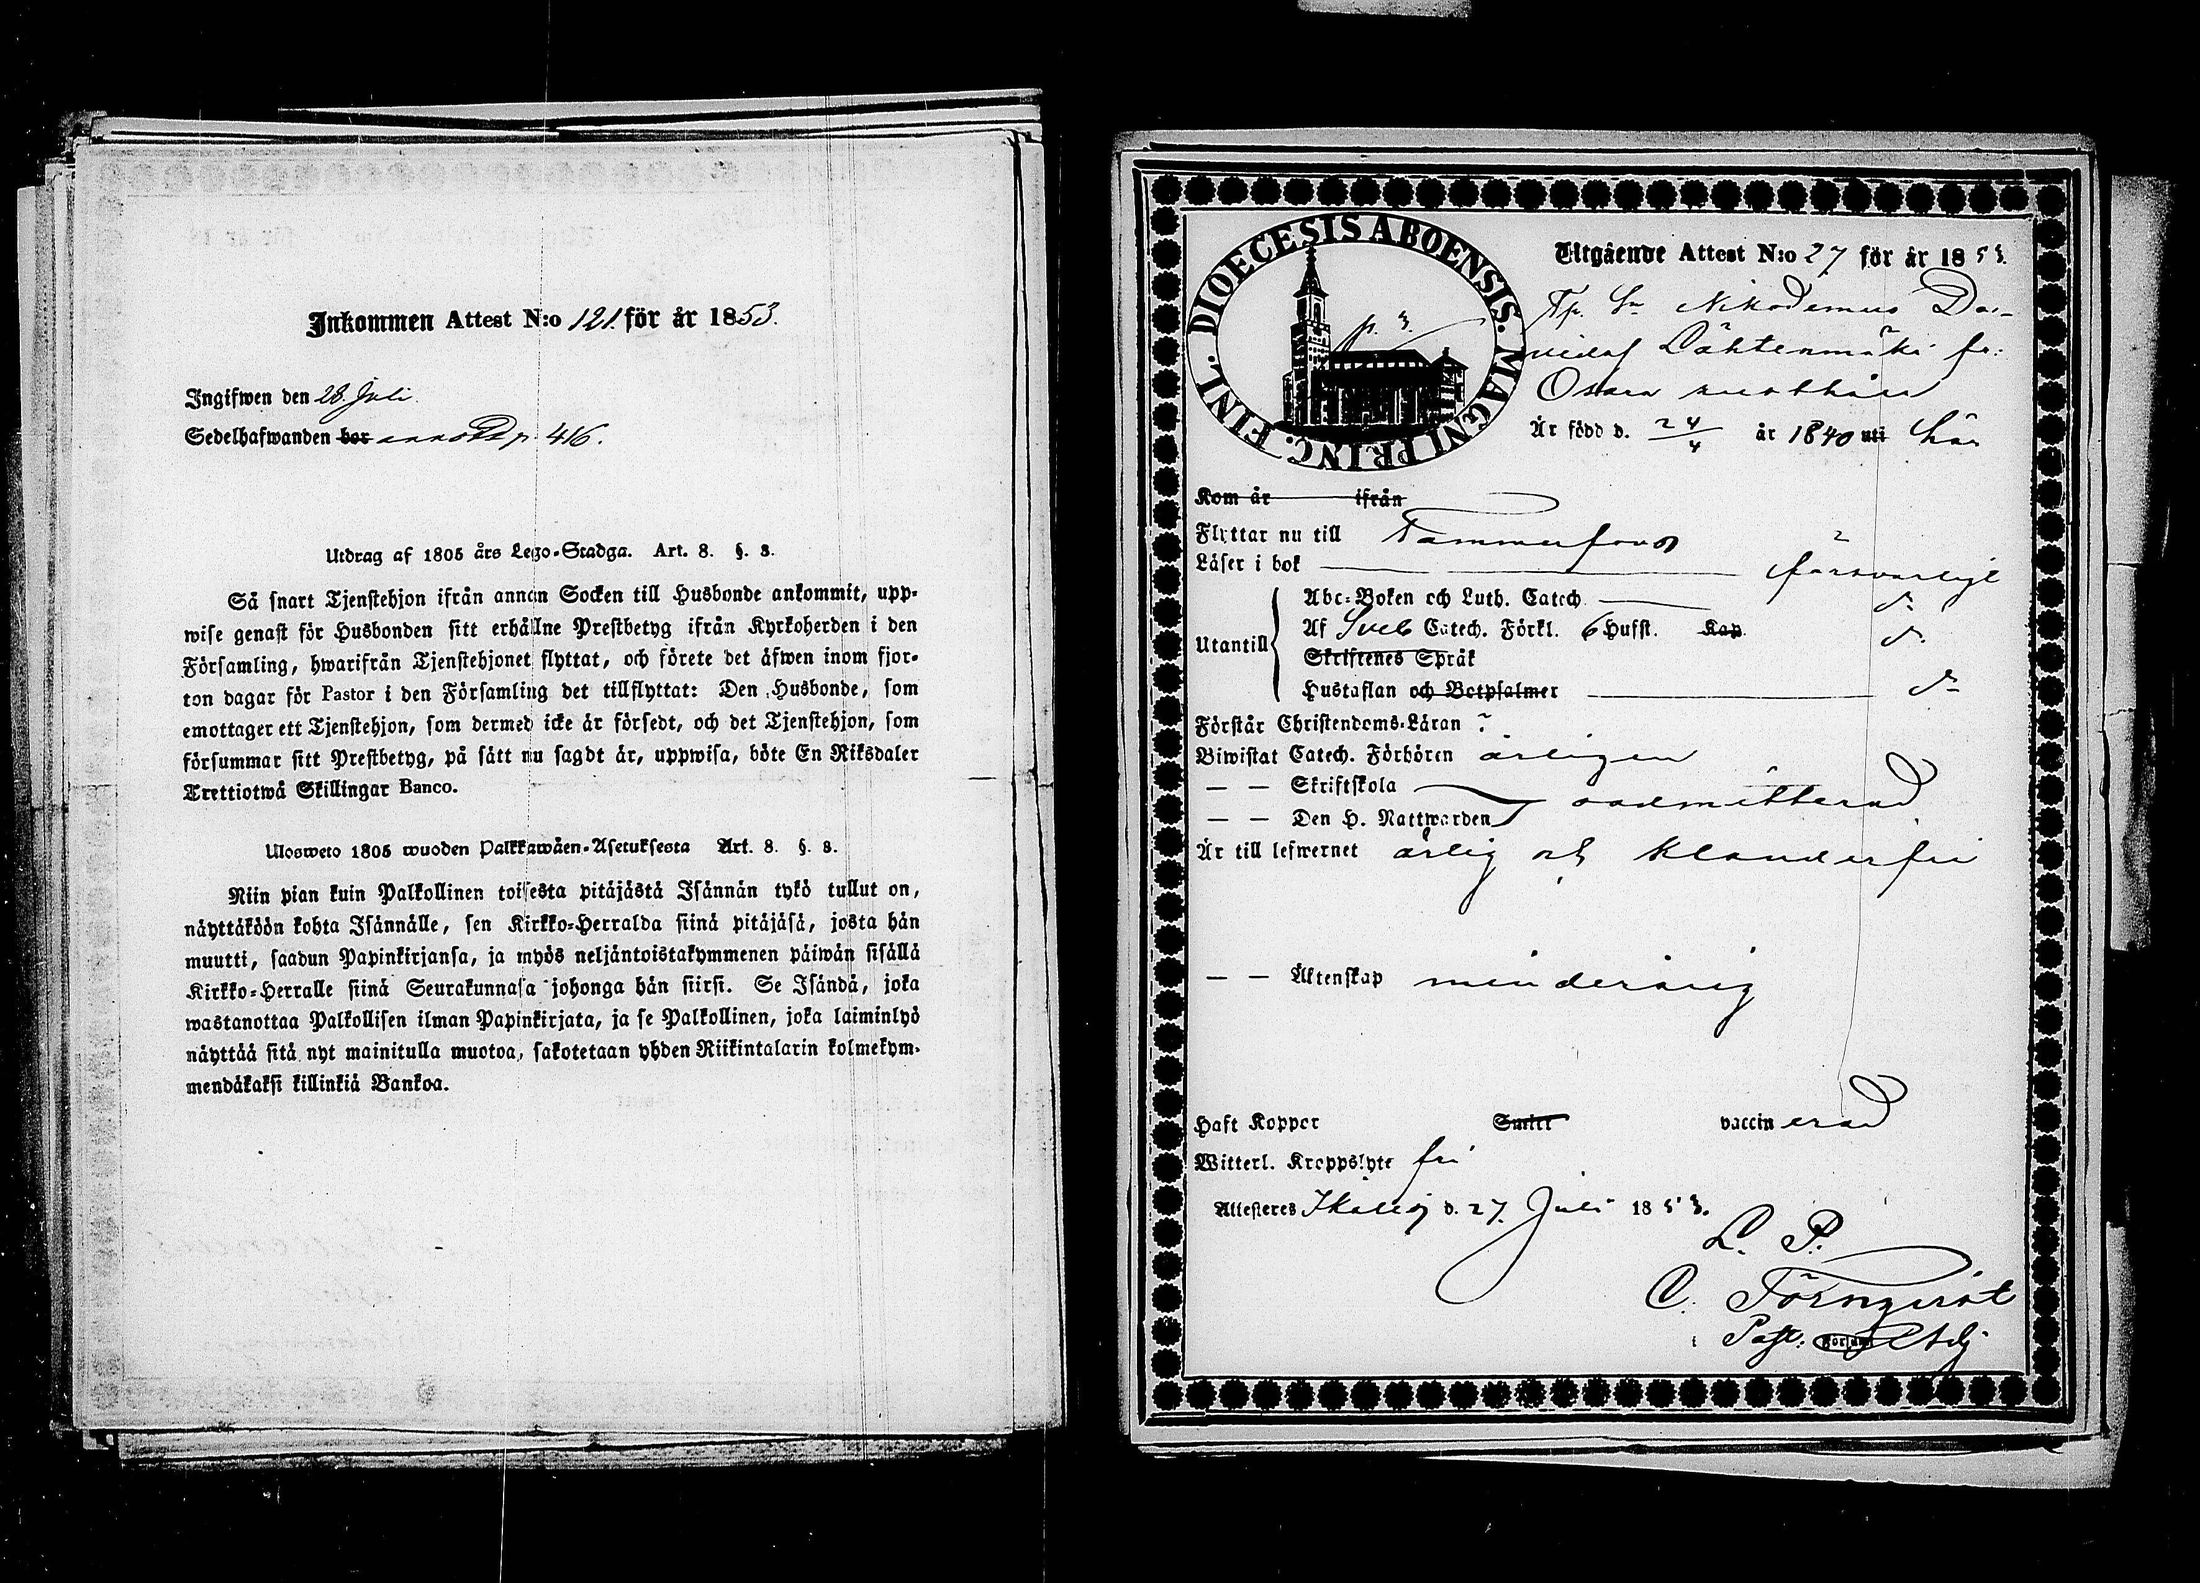 Inkommen Attest N:o 121. för år 1853.
Ingifwen den 28. Juli.
Sedelhafwanden bor p. 416.
Utdrag af 1805 års Lego-Stadga. Art. 8. §. 8.
Så snart Tjenstehjon ifrån annan Socken till Husbonde ankommit, upp-
wise genast för Husbonden sitt erhållne Prestbetyg ifrån Kyrkoherden i den
Församling, hwarifrån Tjenstehjonet flyttat, och förete det äfwen inom fjor-
ton dagar för Pastor i den Församling det tillflyttat: Den Husbonde, som
emottager ett Tjenstehjon, som dermed icke är försedt, och det Tjenstehjon, som
försummar sitt Prestbetyg, på sätt nu sagdt är, uppwisa, böte En Riksdaler
Trettiotwå Skillingar Banco.
Ulosweto 1805 wuoden Palkkawäen-Asetuksesta Art. 8. §. 8.
Niin pian kuin Palkollinen toisesta pitäjästä Isännän tykö tullut on,
näyttäköön kohta Isännälle, sen Kirkko-Herralda siinä pitäjäsä, josta hän
muutti, saadun Papinkirjansa, ja myös neljäntoistakymmenen päiwän sisällä
Kirkko-Herralle siinä Seurakunnasa johonga hän siirsi. Se Isändä, joka
wastanottaa Palkollisen ilman Papinkirjata, ja se Palkollinen, joka laiminlyö
näyttää sitä nyt mainitulla muotoa, sakotetaan yhden Riikintalarin kolmekym-
mendäkaksi killinkiä Bankoa.
DIOECESIS ABOENSIS. MAGNI PRINC. FINL.
p. 3.
Utgående Attest N:o 27 för år 1853.
Tp. Sn Nikodemus Da-
vidsf Lähtenmäki fr.
Osara
Är född d. 24/4 år 1840 uti här
Kom år ifrån
Flyttar nu till Tammerfors
Läser i bok försvarligt
Utantill
Abc-Boken och Luth. Catech. do
Af Sveb Catech. Förkl. 6 Hufst. Kap. do
Skriftenes Språk
Hustaflan och Botpsalmer do
Förstår Christendoms-Läran ?
Biwistat Catech. Förhören årligen
— — Skriftskola oadmitterad
— — Den H. Nattwarden
Är till lefwernet ärlig och klanderfri
— — Äktenskap minderårig
Haft Koppor Smitt vaccinerad
Witterl. Kroppslyte fri
Attesteres Ikalis d. 27. Juli 1853.
L. P.
C. Törnqvist
Past: Adj